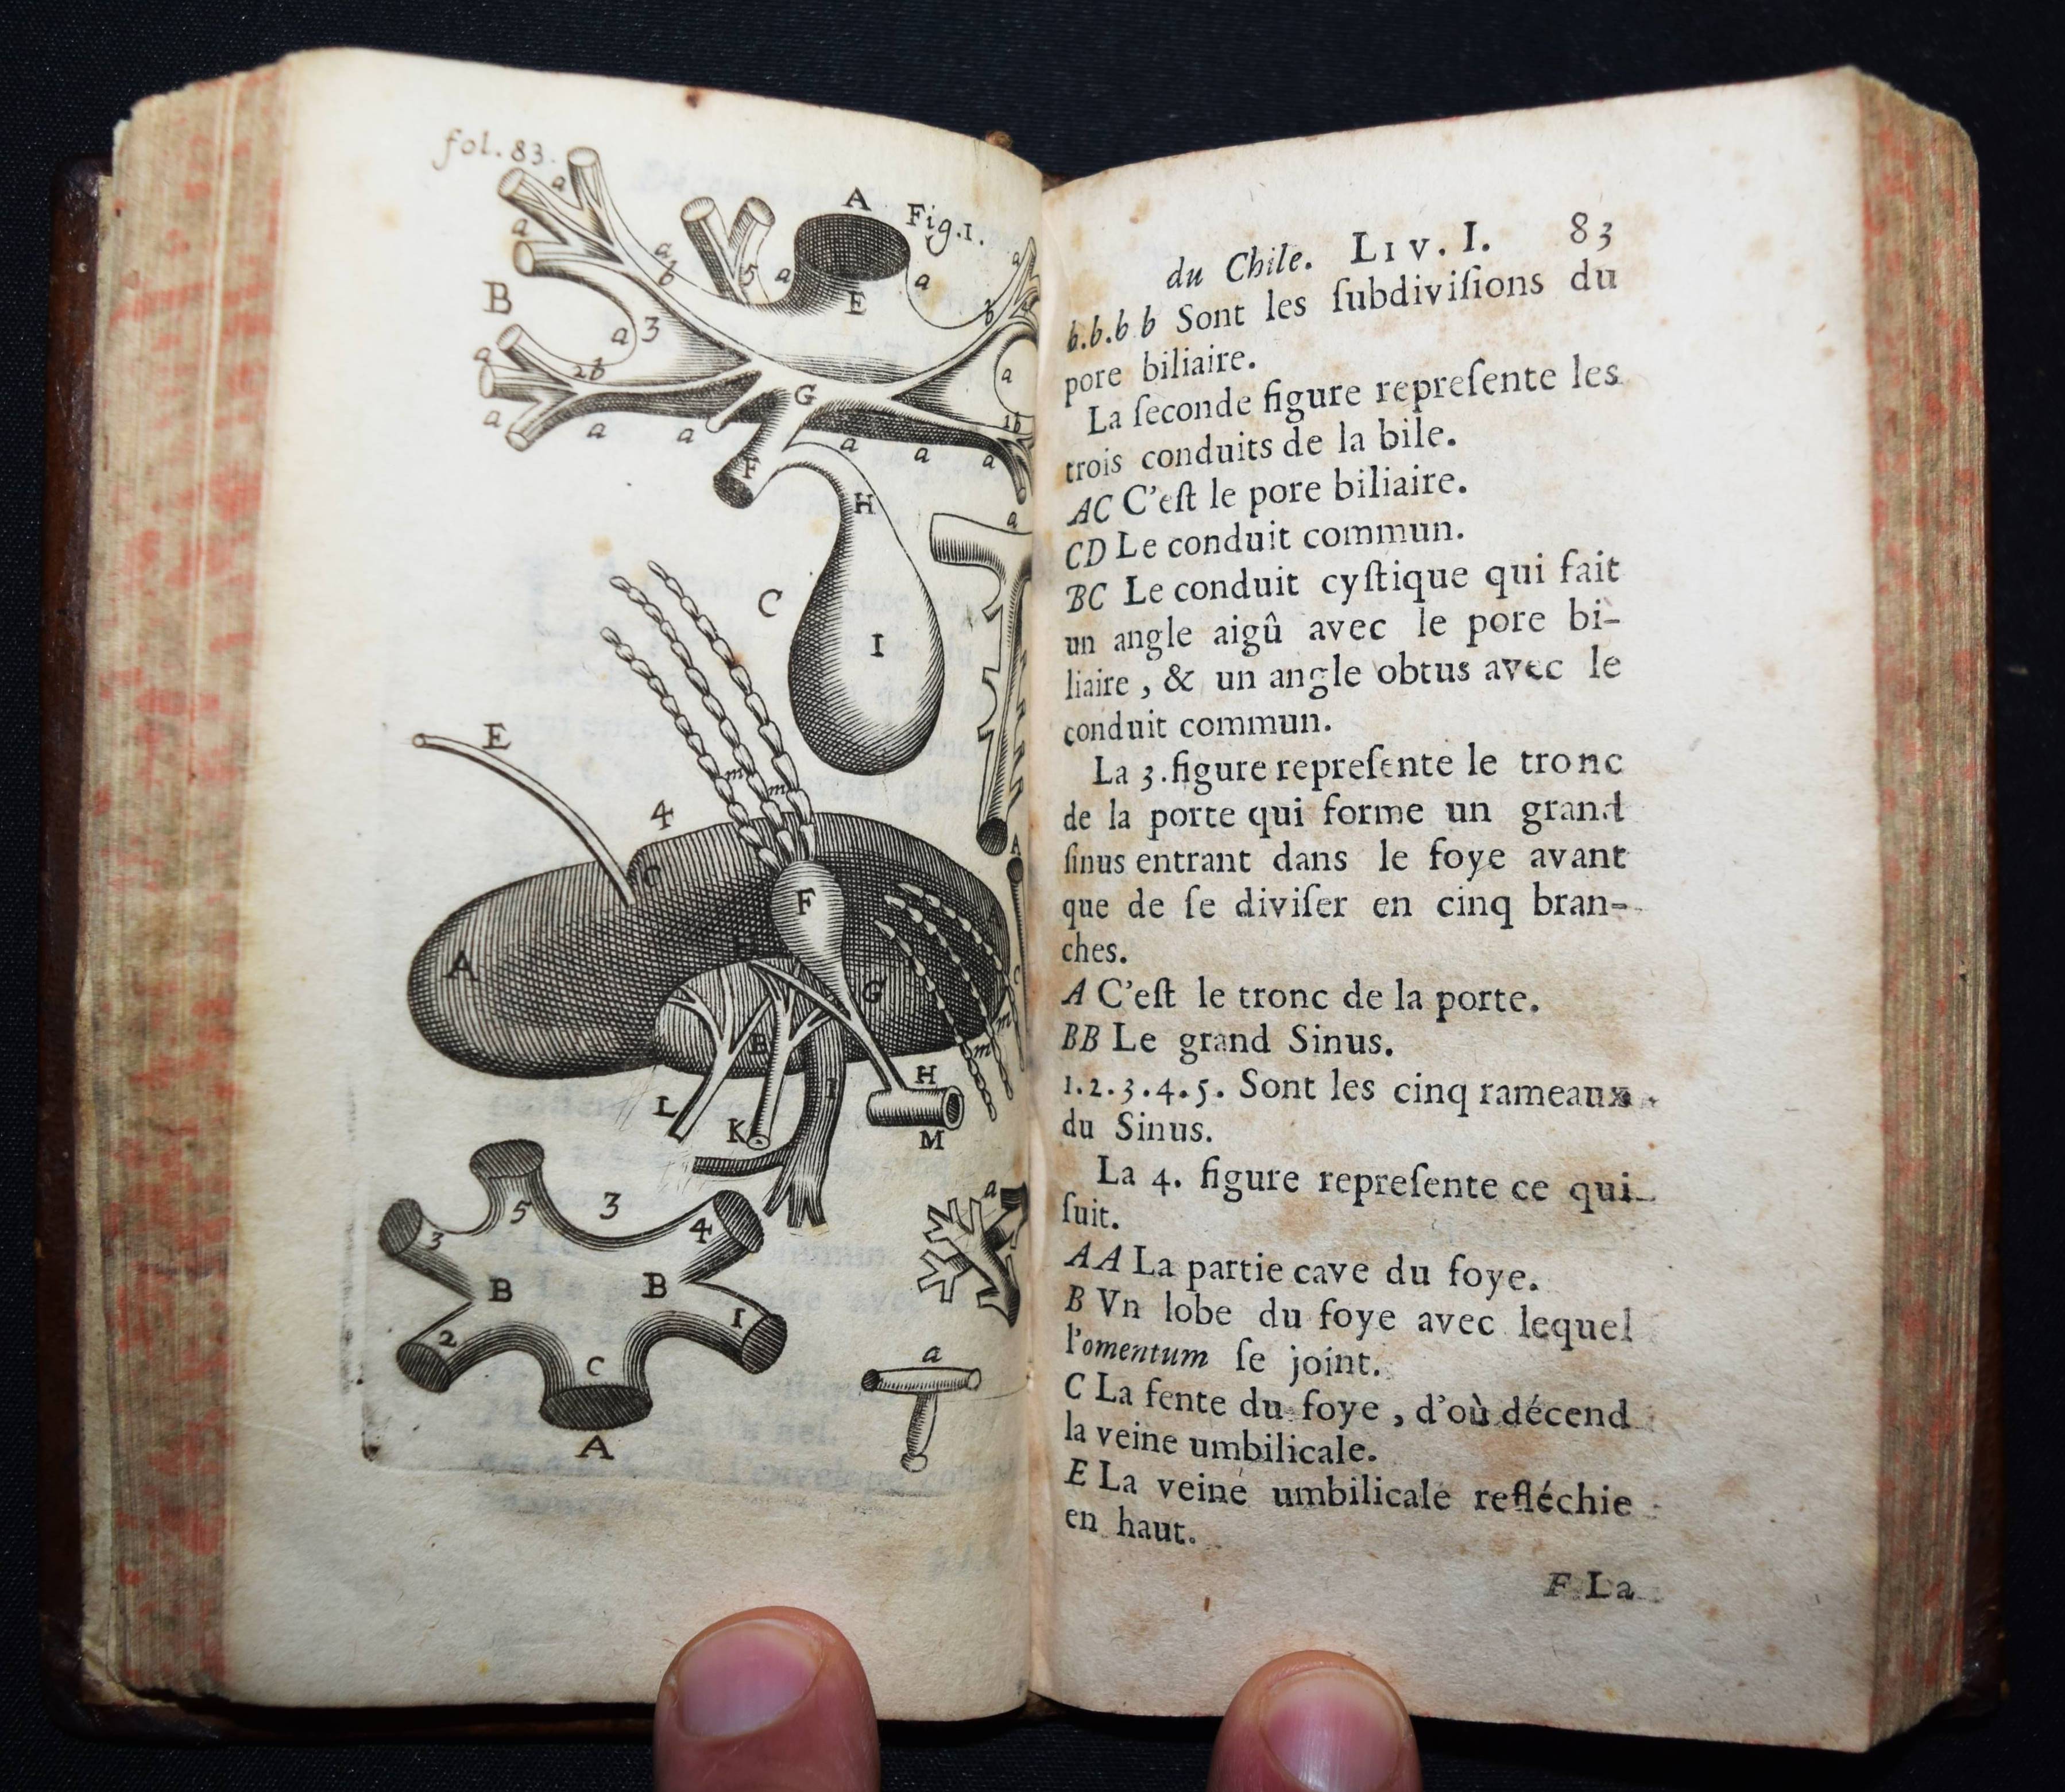 fol. 83.
A Fig.1.
B
C
E
4
3
A
du Chile. LIV. I. 83
b.b.b b Sont les ſubdiviſions du
pore biliaire.
La ſeconde figure repreſente les
trois conduits de la bile.
AC C'eſt le pore biliaire.
CD Le conduit commun.
BC Le conduit cyſtique qui fait
un angle aigû avec le pore bi-
liaire, & un angle obtus avec le
conduit commun.
La 3. figure repreſente le tronc
de la porte qui forme un grand
ſinus entrant dans le foye avant
que de ſe diviſer en cinq bran-
ches.
A C'eſt le tronc de la porte.
BB Le grand Sinus.
1.2.3.4.5. Sont les cinq rameaux
du Sinus.
La 4. figure repreſente ce qui
ſuit.
AA La partie cave du foye.
B Vn lobe du foye avec lequel
l'omentum ſe joint.
C La fente du foye, d'où décend
la veine umbilicale.
E La veine umbilicale refléchie
en haut.
F La